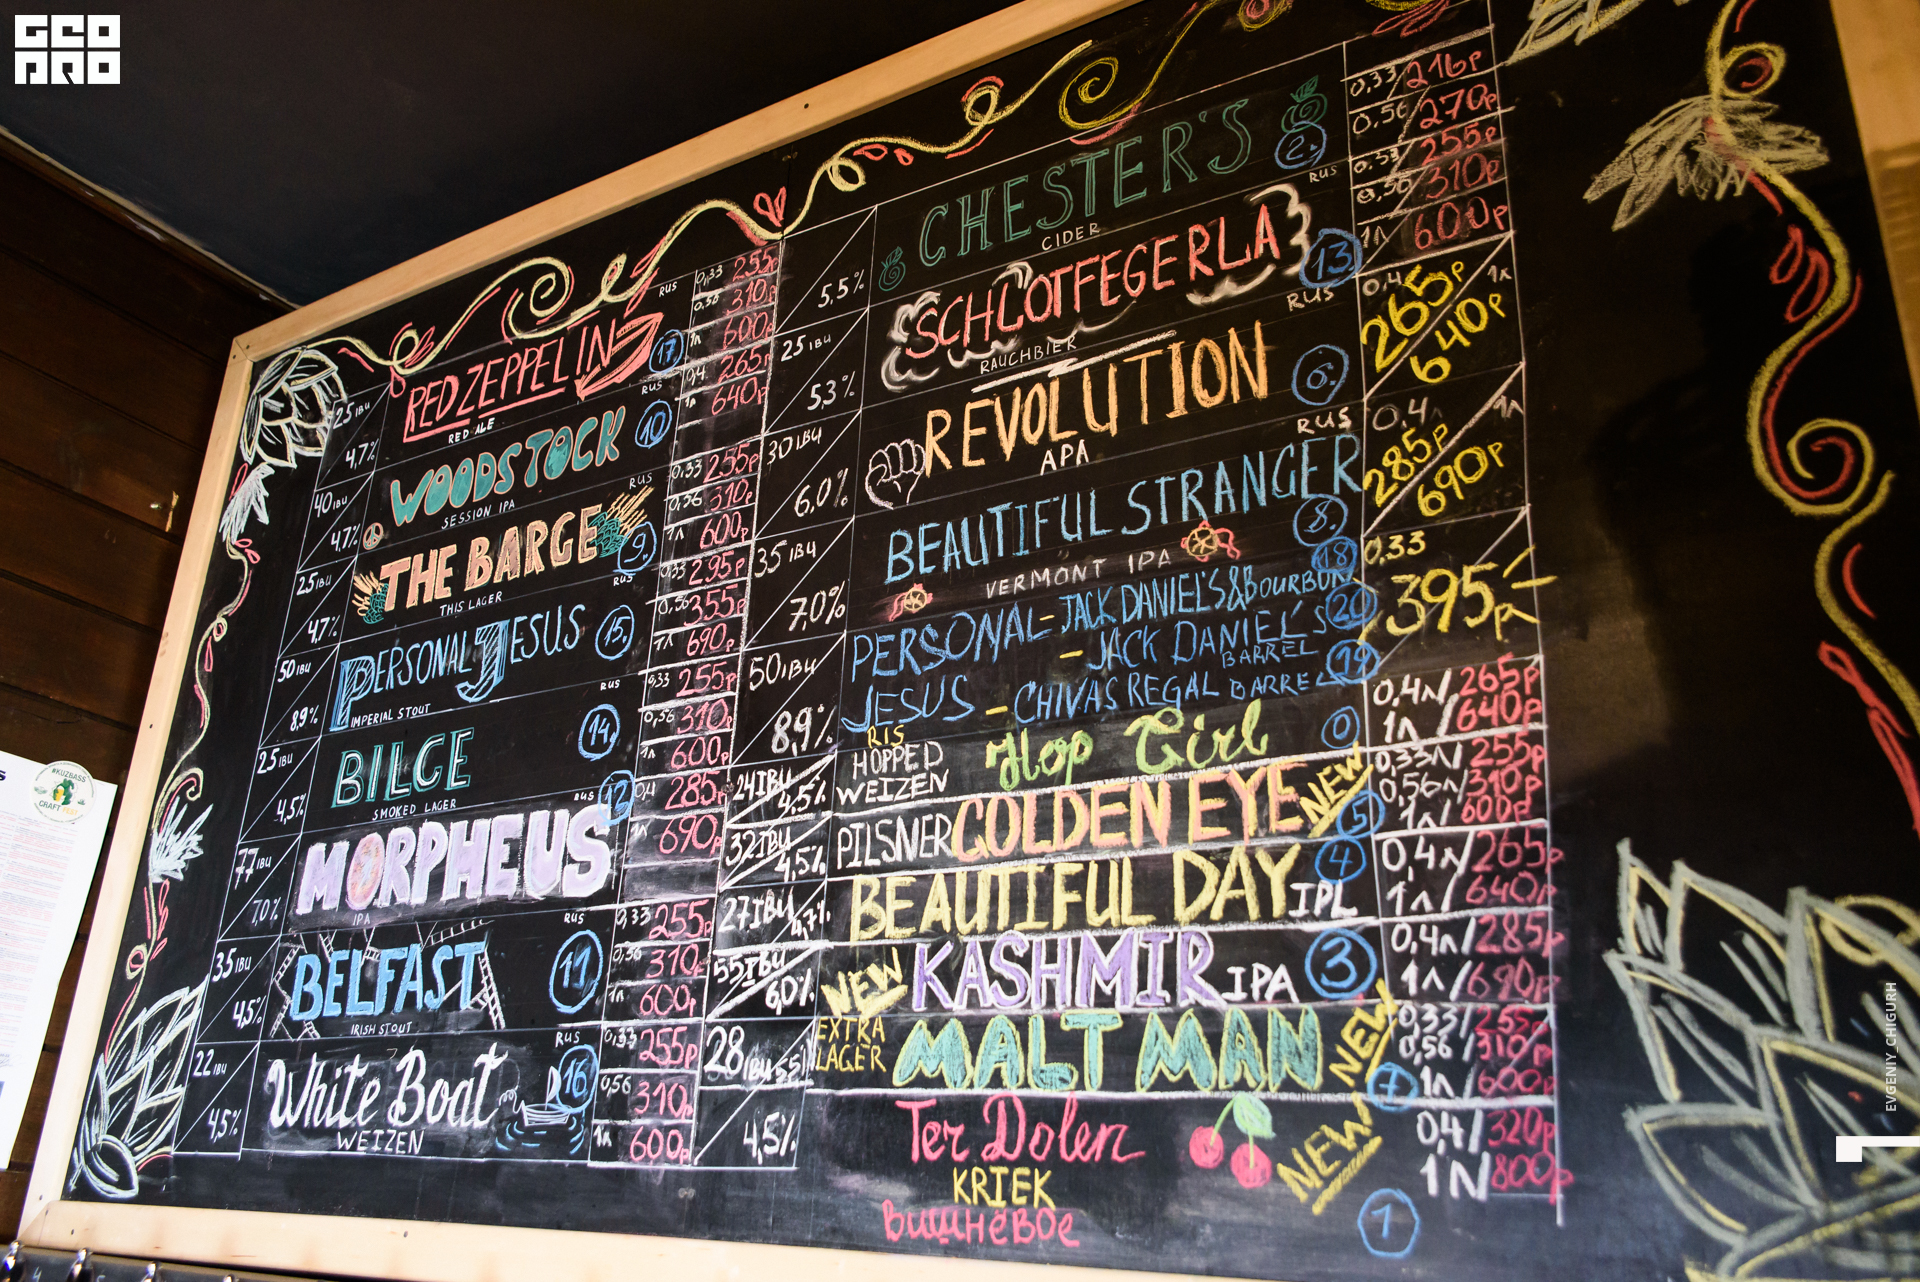 GEO
PRO
RED ZEPPELIN
RED ALE
RUS
17
25 IBU
4,7%
0,33 255р
0,56 310р
1л 600р
WOODSTOCK
SESSION IPA
RUS
10
40 IBU
4,7%
0,4 265р
1л 640р
THE BARGE
THIS LAGER
RUS
9.
25 IBU
4,7%
0,33 255р
0,56 310р
1л 600р
PERSONAL JESUS
IMPERIAL STOUT
RUS
15.
50 IBU
8,9%
0,33 295р
0,56 355р
1л 690р
BILGE
SMOKED LAGER
RUS
14.
25 IBU
4,5%
0,33 255р
0,56 310р
1л 600р
MORPHEUS
IPA
RUS
12
77 IBU
7,0%
0,4 285р
1л 690р
BELFAST
IRISH STOUT
RUS
11
35 IBU
4,5%
0,33 255р
0,56 310р
1л 600р
White Boat
WEIZEN
RUS
16
22 IBU
4,5%
0,33 255р
0,56 310р
1л 600р
CHESTER'S
CIDER
2.
RUS
5,5%
0,33/216р
0,56/270р
SCHLOTFEGERLA
RAUCHBIER
13.
RUS
25 IBU
5,3%
0,33/255р
0,56/310р
1л 600р
REVOLUTION
APA
6.
30 IBU
6,0%
0,4 265р
1л 640р
BEAUTIFUL STRANGER
VERMONT IPA
RUS
8.
35 IBU
7,0%
0,4л 285р
1л 690р
PERSONAL – JACK DANIEL'S & BOURBON 18
– JACK DANIEL'S BARREL 20
JESUS – CHIVAS REGAL BARREL 19
RIS
50 IBU
8,9%
0,33
395р
HOPPED
WEIZEN
Hop Girl
0
24 IBU
4,5%
0,4л/265р
1л/640р
PILSNER GOLDEN EYE NEW
5
32 IBU
4,5%
0,33л/255р
0,56л/310р
1л/600р
BEAUTIFUL DAY IPL
4
27 IBU
4,7%
0,4л/265р
1л/640р
NEW KASHMIR IPA
3
55 IBU
6,0%
0,4л/285р
1л/690р
EXTRA
LAGER
MALT MAN NEW
7
28 IBU
0,33/255р
0,56/310р
1л/600р
Ter Dolen
KRIEK
Вишнёвое
NEW
1
4,5%
0,4/320р
1л/800р
#KUZBASS
CRAFT
EVGENIY_CHIGURH